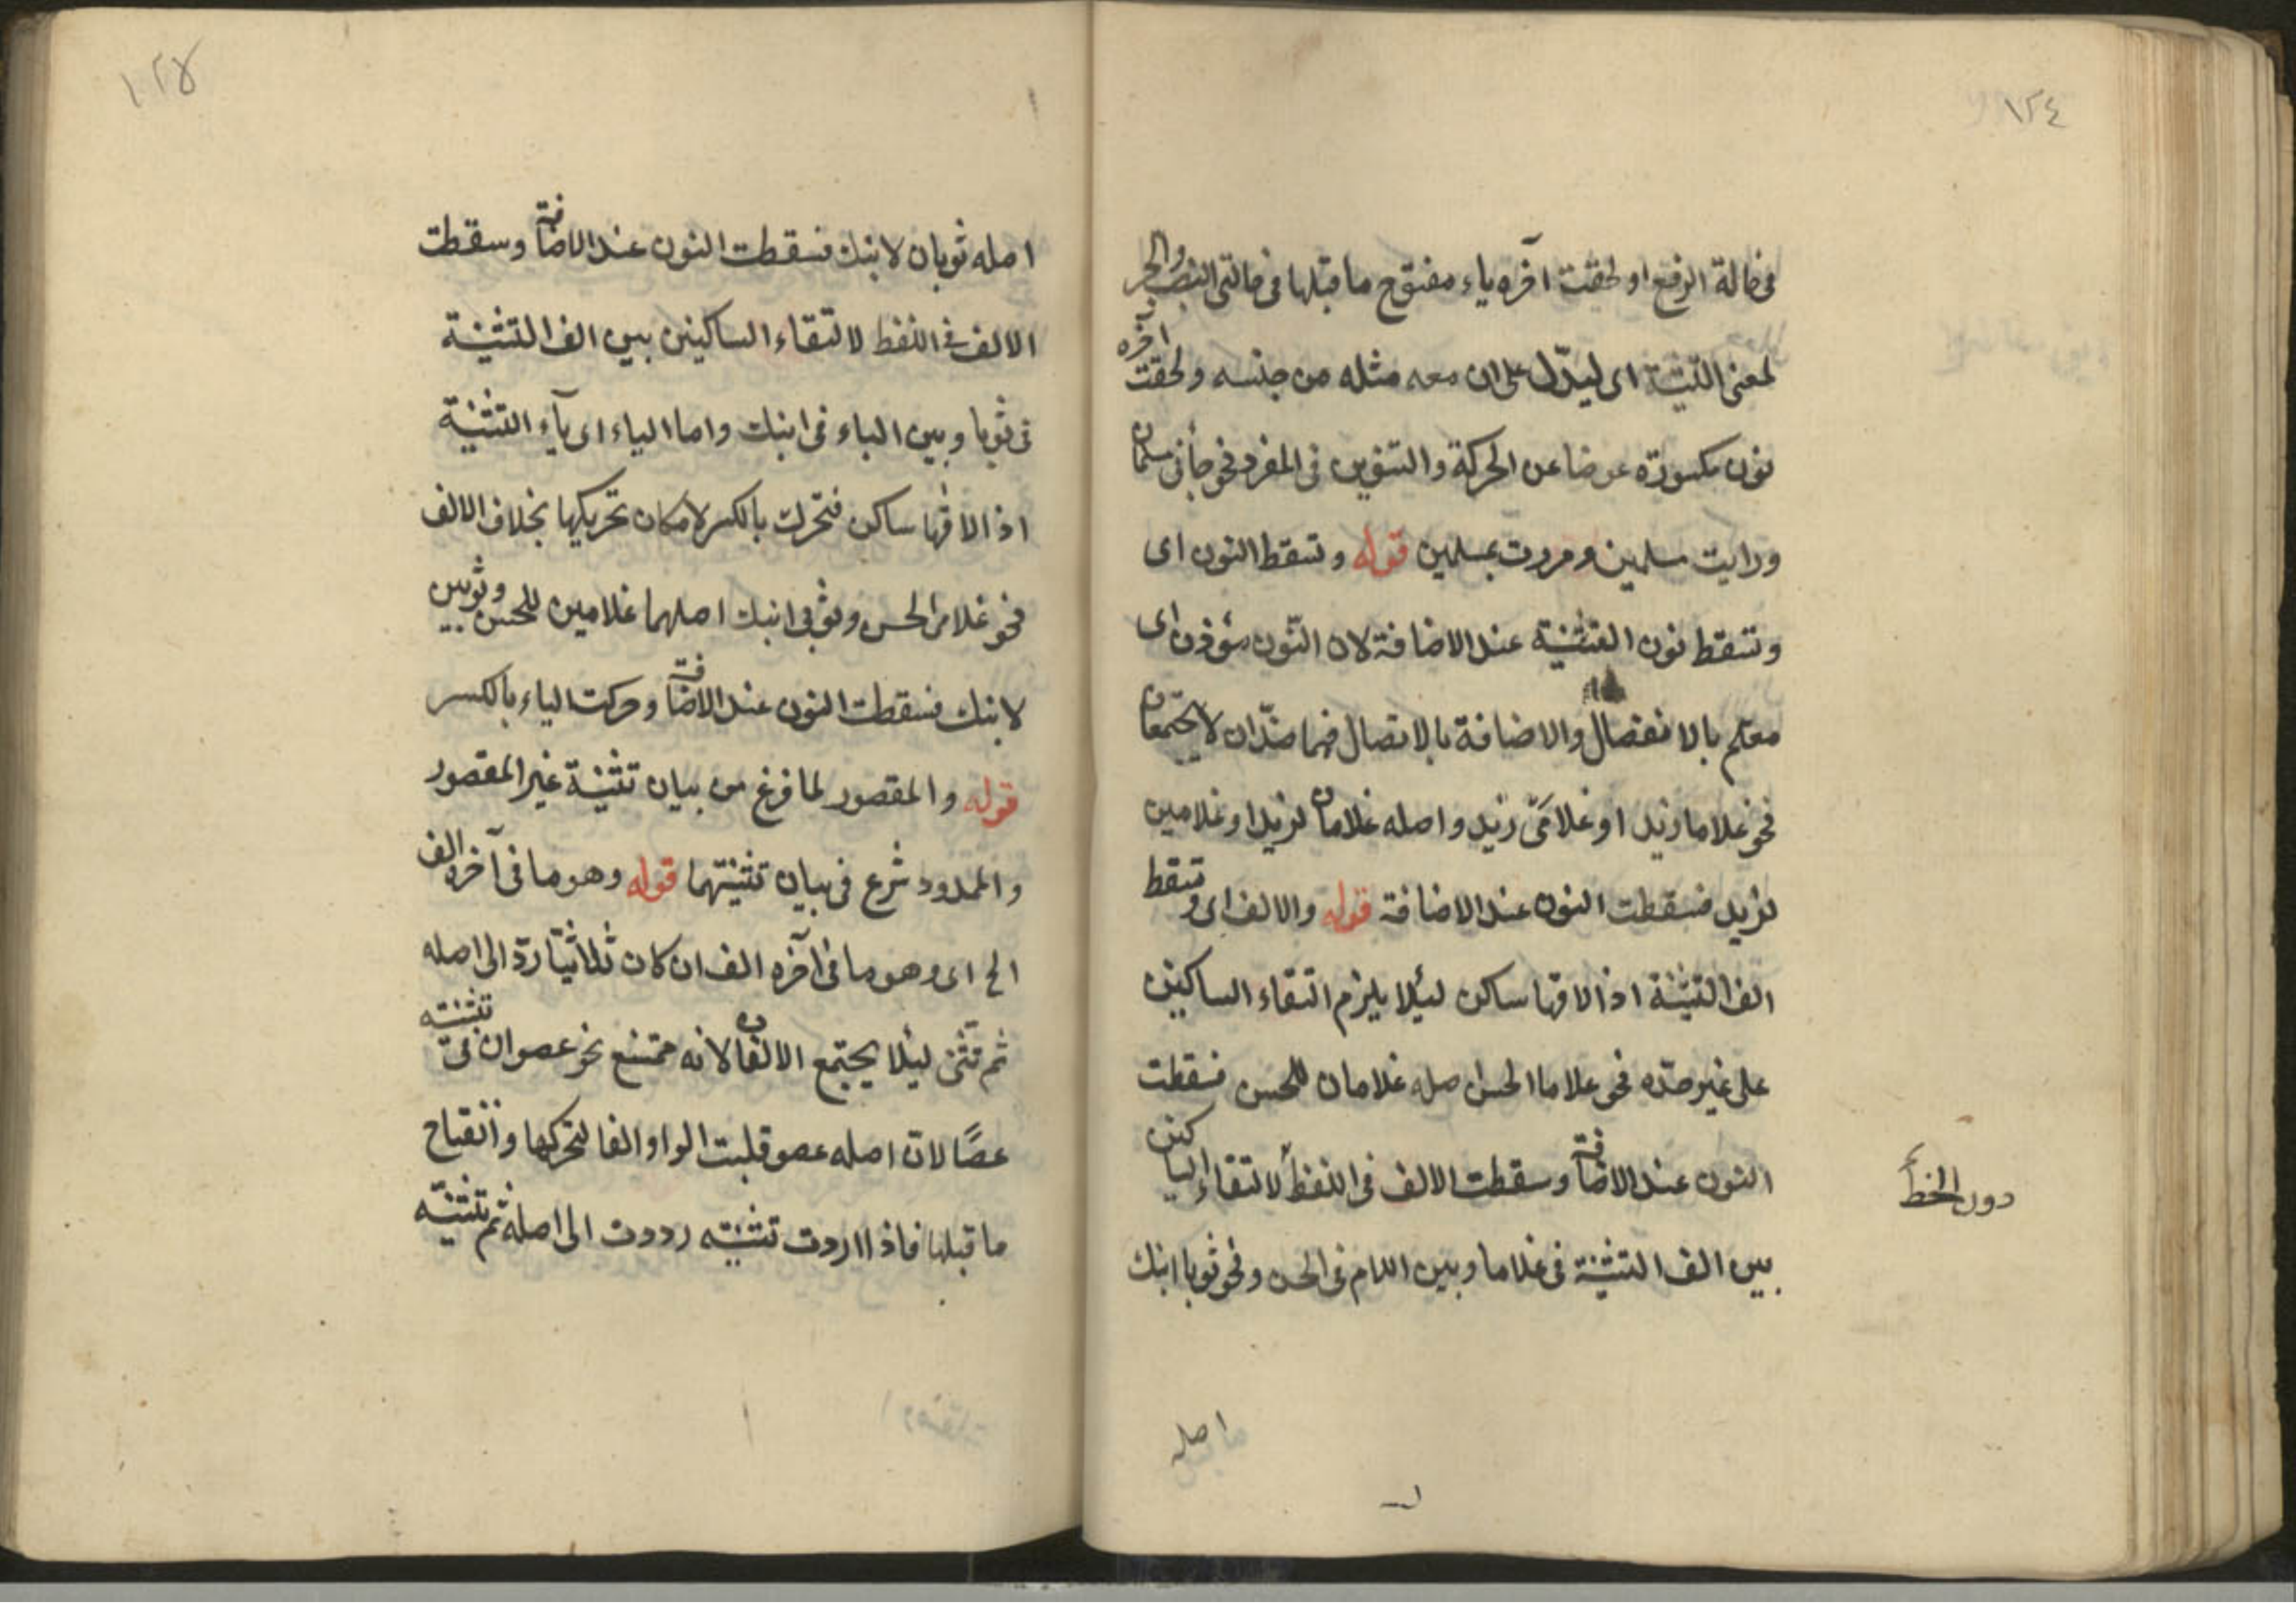 ١٢٤
فى حالة الرفع او لحقت آخره ياء مفتوح ما قبلها فى حالتى النصب والجر
لمعنى التثنية اى ليدّل على ان معه مثله من جنسه ولحقت آخره
نون مكسورة عوضا عن الحركة والتنوين فى المفرد نحو جأنى مسلمان
ورايت مسلمين ومررت بمسلمين قوله وتسقط النون اى
وتسقط نون التثنية عند الاضافة لان النّون مؤذن اى
معلم بالانفصال والاضافة بالاتصال فهما ضدّان لا يجتمعان
نحو غلاما زيد او غلامَىْ زيد واصله غلامان لزيد او غلامين
لزيد فسقطت النون عند الاضافة قوله والالف اى وتسقط
الف التثنية اذا لاقها ساكن ليئلا يلزم التقاء الساكنين
على غير حدّه نحو غلاما الحسن اصله غلامان للحسن فسقطت
النون عند الاضافة وسقطت الالف فى اللفظ لالتقاء الساكنين
دون الخط
بين الف التثنية فى غلاما وبين اللام فى الحسن ونحو ثوبا ابنك
اصله
١٢٥
اصله ثوبان لابنك فسقطت النون عند الاضافة وسقطت
الالف فى اللفظ لالتقاء الساكنين بين الف التثنية
فى ثوبا وبين الباء فى ابنك واما الياء اى يآء التثنية
اذا لاقها ساكن فتحرك بالكسر لامكان تحريكها بخلاف الالف
نحو غلامى الحسن وثوبى ابنك اصلهما غلامين للحسن وثوبين
لابنك فسقطت النون عند الاضافة وحركت الياء بالكسر
قوله والمقصور لما فرغ من بيان تثنية غير المقصور
والممدود شرع فى بيان تثنيتهما قوله وهو ما فى آخره الف
الخ اى وهو ما فى آخره الف ان كان ثلاثيّا ردّ الى اصله
ثم تثنى ليئلا يجتمع الالفان لانه ممتنع نحو عصوان فى تثنيته
عصًا لانّ اصله عصو قلبت الواو الفا لتحركها وانفتاح
ما قبلها فاذا اردت تثنيته رددت الى اصله ثم تثنيّه